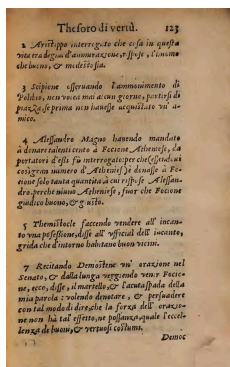 Thesoro di vertù. 123
2 Aristippo interrogato che cosa in questa
vita era degna d'ammiratione, rispose, l'huomo
che buono, & modesto sia.
3 Scipione osseruando l'ammonimento di
Polibio, non voleua mai alcun giorno, partirsi di
piazza, se prima non hauesse acquistato vn'a-
mico.
4 Alessandro Magno hauendo mandato
à donar talenti cento à Focione Atheniese, da
portatori d'essi fù interrogato: per che (essendo vi
cosi gran numero d'Atheniesi) è donasse à Fo-
cione solo tanta quantità, à cui rispose Alessan-
dro. perche niuno Atheniese, fuor che Focione
giudico buono, & giusto.
5 Themistocle faccendo vendere all' incan-
to vna possessione, disse all' vfficial dell' incanto,
grida che d'intorno habitano buon vicini.
7 Recitando Demostene vn' oratione nel
Senato, & dalla lunga vergiendo venir Focio-
ne, ecco, disse, il martello, & l'acuta spada della
mia parola: volendo denotare, & persuadere
con tal modo di dire, che la forza dell' oratio-
ne non hà tal' effetto, ne possanza, quale l'eccel-
lenza de buoni, & vertuosi costumi.
Demos